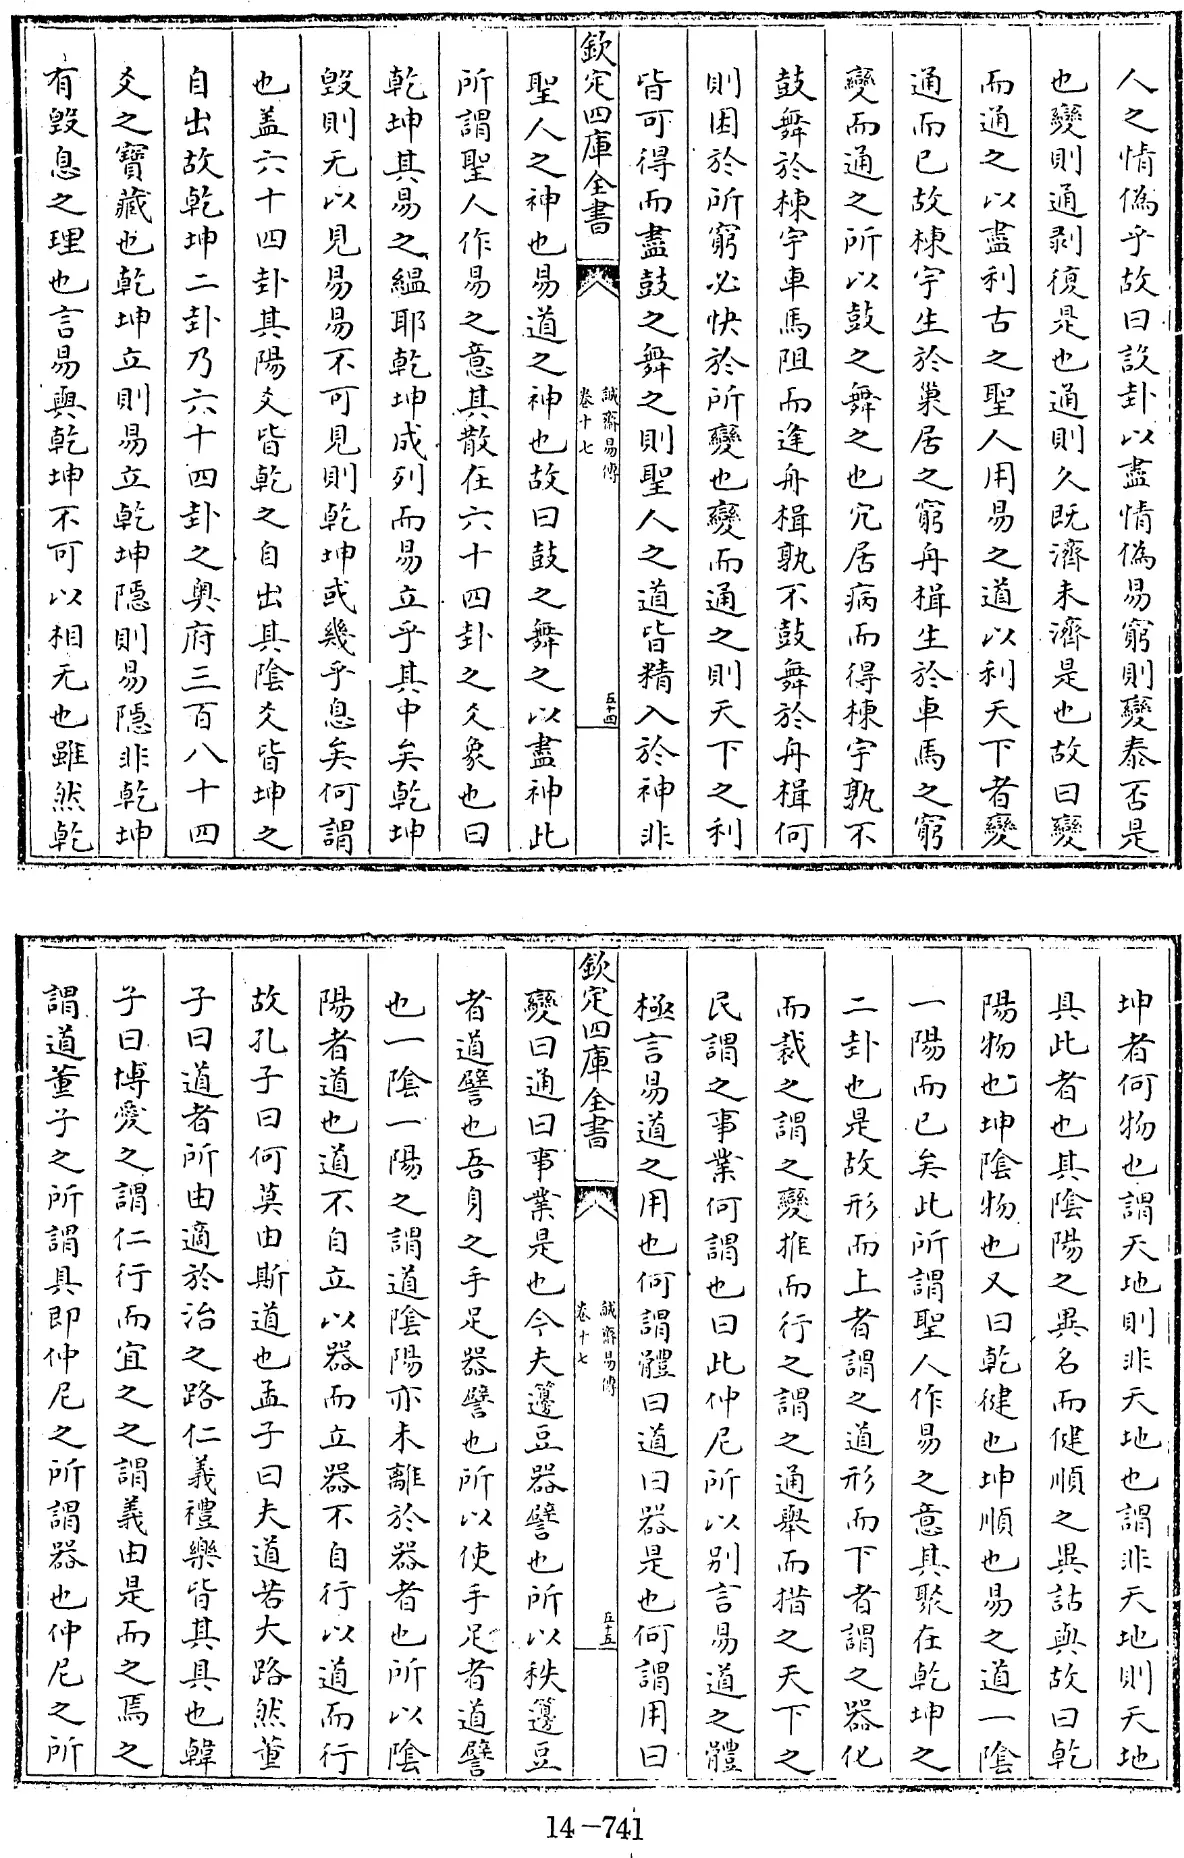 人之情偽乎故曰設卦以盡情偽易窮則變泰否是
也變則通剥復是也通則久既濟未濟是也故曰變
而通之以盡利古之聖人用易之道以利天下者變
通而已故棟宇生於巢居之窮舟楫生於車馬之窮
變而通之所以鼓之舞之也穴居病而得棟宇孰不
鼓舞於棟宇車馬阻而逢舟楫孰不鼓舞於舟楫何
則困於所窮必快於所變也變而通之則天下之利
皆可得而盡鼓之舞之則聖人之道皆精入於神非
欽定四庫全書
誠齋易傳
卷十七
五十四
聖人之神也易道之神也故曰鼓之舞之以盡神此
所謂聖人作易之意其散在六十四卦之爻象也曰
乾坤其易之縕耶乾坤成列而易立乎其中矣乾坤
毀則无以見易易不可見則乾坤或幾乎息矣何謂
也盖六十四卦其陽爻皆乾之自出其陰爻皆坤之
自出故乾坤二卦乃六十四卦之奥府三百八十四
爻之寶藏也乾坤立則易立乾坤隱則易隱非乾坤
有毀息之理也言易與乾坤不可以相无也雖然乾
坤者何物也謂天地則非天地也謂非天地則天地
具此者也其陰陽之異名而健順之異詁與故曰乾
陽物也坤陰物也又曰乾健也坤順也易之道一陰
一陽而已矣此所謂聖人作易之意其聚在乾坤之
二卦也是故形而上者謂之道形而下者謂之器化
而裁之謂之變推而行之謂之通舉而措之天下之
民謂之事業何謂也曰此仲尼所以别言易道之體
極言易道之用也何謂體曰道曰器是也何謂用曰
欽定四庫全書
誠齋易傳
卷十七
五十五
變曰通曰事業是也今夫籩豆器譬也所以秩籩豆
者道譬也吾身之手足器譬也所以使手足者道譬
也一陰一陽之謂道陰陽亦未離於器者也所以陰
陽者道也道不自立以器而立器不自行以道而行
故孔子曰何莫由斯道也孟子曰夫道若大路然董
子曰道者所由適於治之路仁義禮樂皆其具也韓
子曰博愛之謂仁行而宜之之謂義由是而之焉之
謂道董子之所謂具即仲尼之所謂器也仲尼之所
14-741